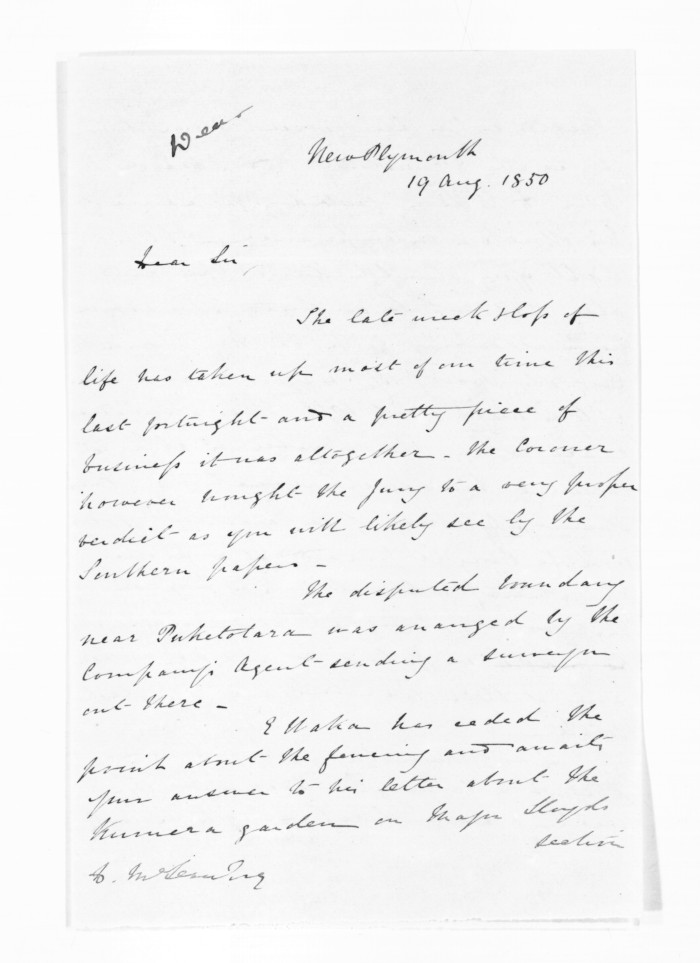 Dear
New Plymouth
19 Aug. 1850
Dear Sir,
The late wreck & loss of
life has taken up most of our time this
last fortnight and a pretty piece of
business it was altogether - the Coroner
however brought the Jury to a very proper
verdict as you will likely see by the
Southern papers -
The disputed boundary
near Puketotara was arranged by the
Company's Agent sending a surveyor
out there -
E Waka has ceded the
point about the fencing and awaits
your answer to his letter about the
Kumera garden on Major Lloyds
section
D. McLean Esq